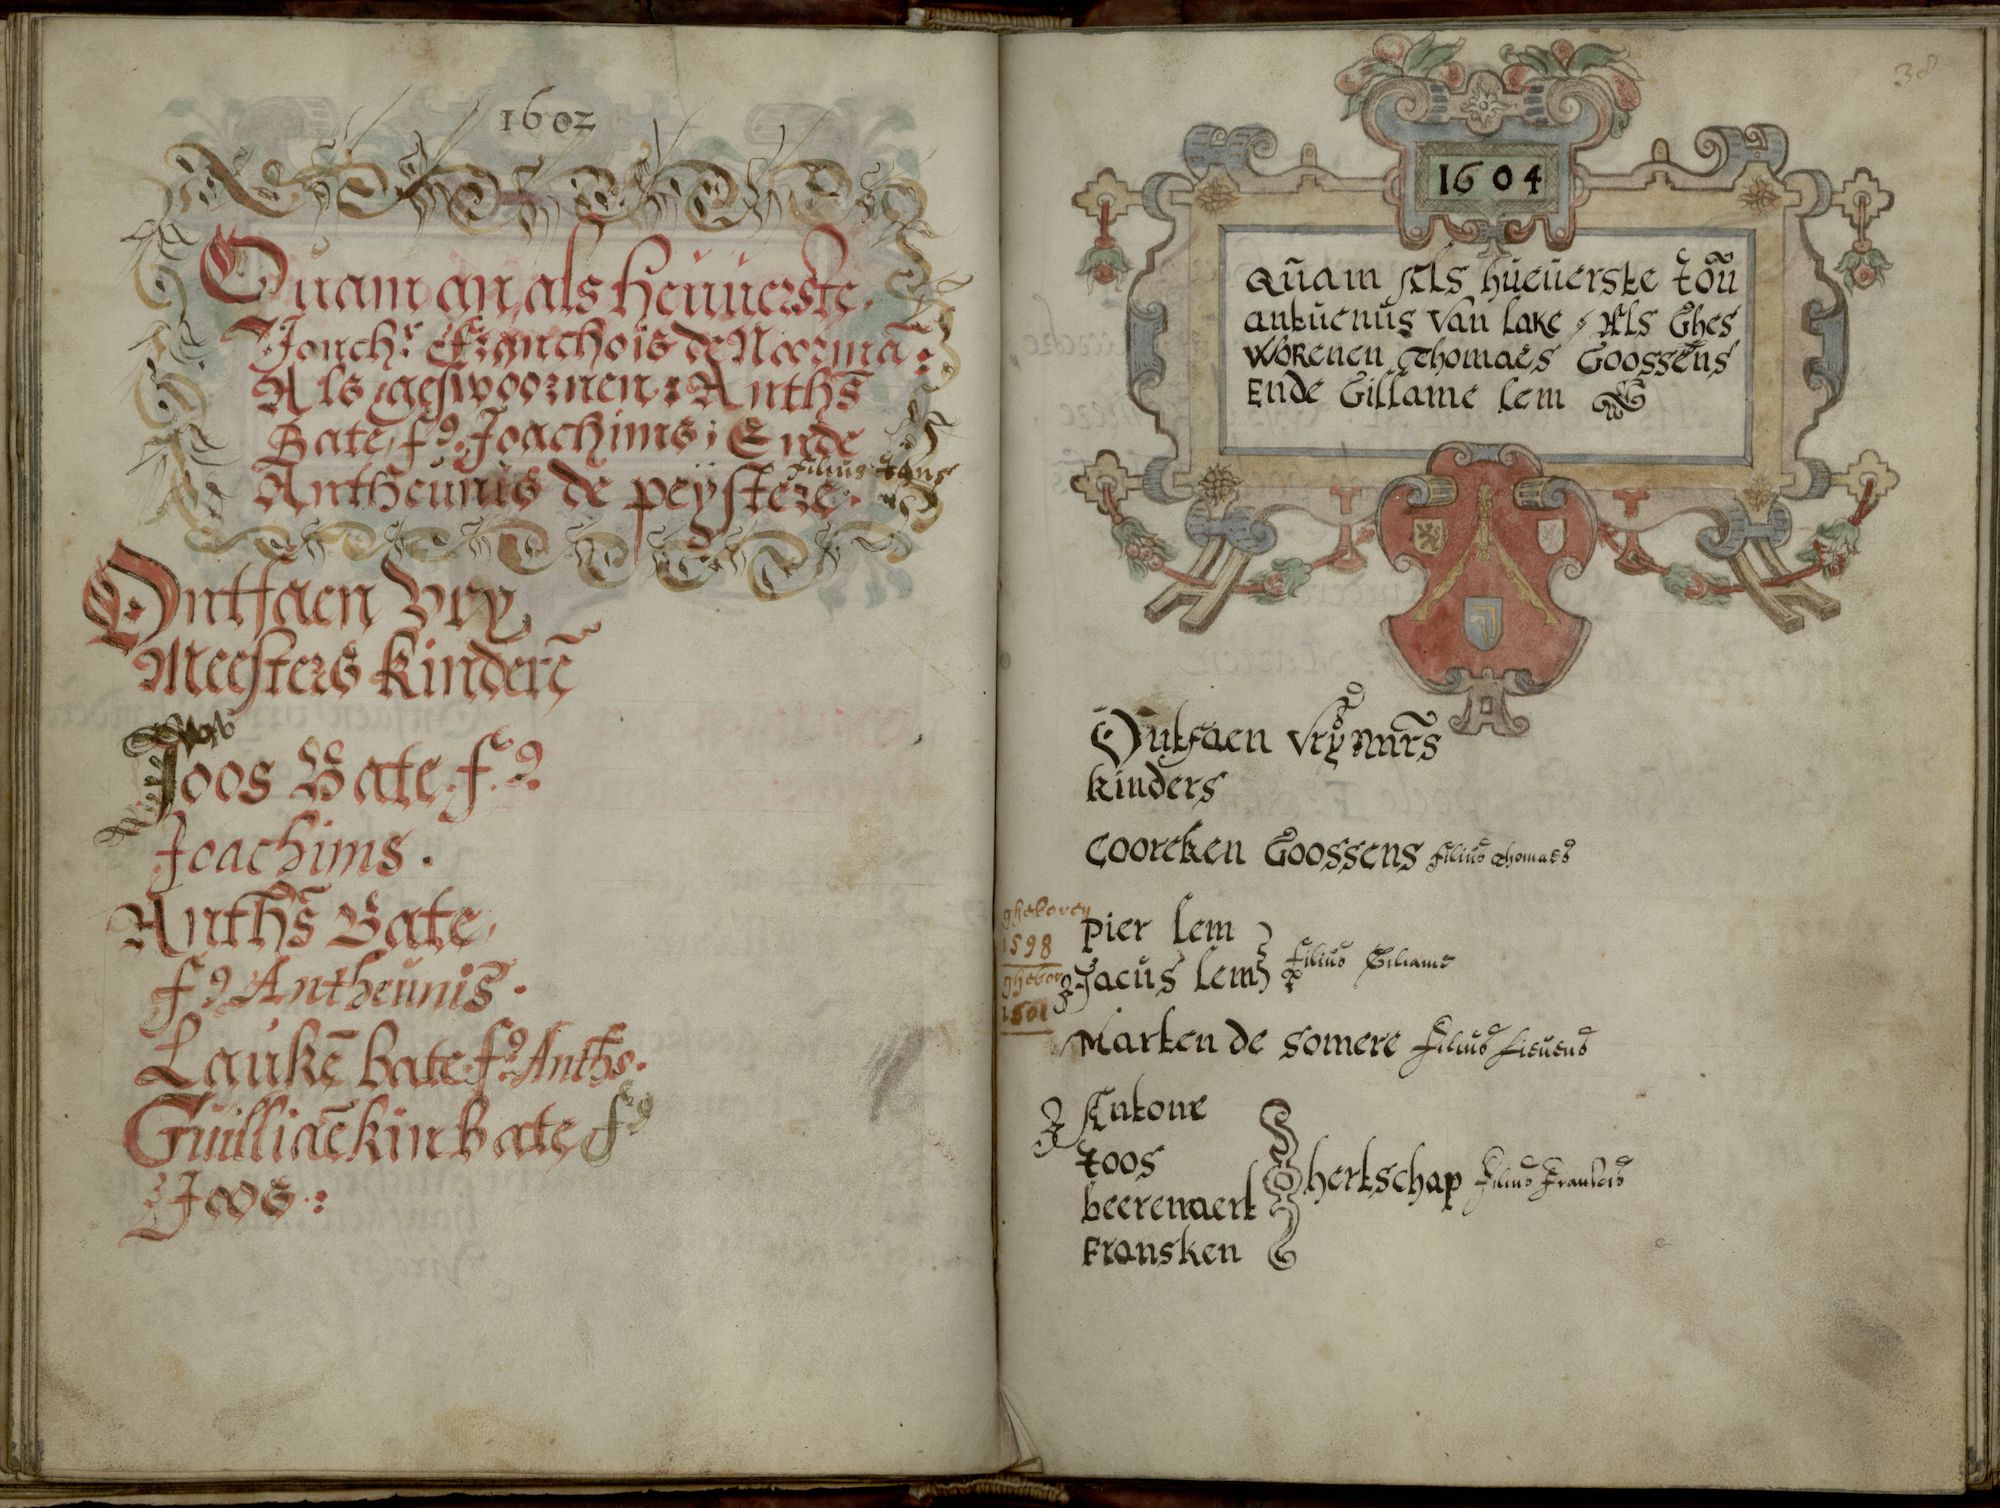 1602
Quam an als heuuerste.
Jonchr Franchois de Noormā:
Als gesvoornen: Anths̄
Bate, f9. Joachims; Ende
filius Jans
Antheunis de peijstere.
Ontfaen Vry
Meesters kinderē
Joos Bate. f9.
Joachims.
Anths̄ Bate,
f9 Antheunis.
Laukē bate. f9 Anths.
Guilliāekin Bate f9
Joos:
38
1604
Quam Als hueuerste Jou
antuenus Van lake, Als Ghes
Worenen Thomaes Goossens
Ende Gillame lem
Ontfaen vrymrs
kinders
Coorcken Goossens filius Thomaes
gheboren
1598
pier lem
filius Giliame
ghebor
1601
Jacus lem
Marten de somere filius Lieuens
Antone
Joos
beerenaert
Fransken
hertschap filius Fransers